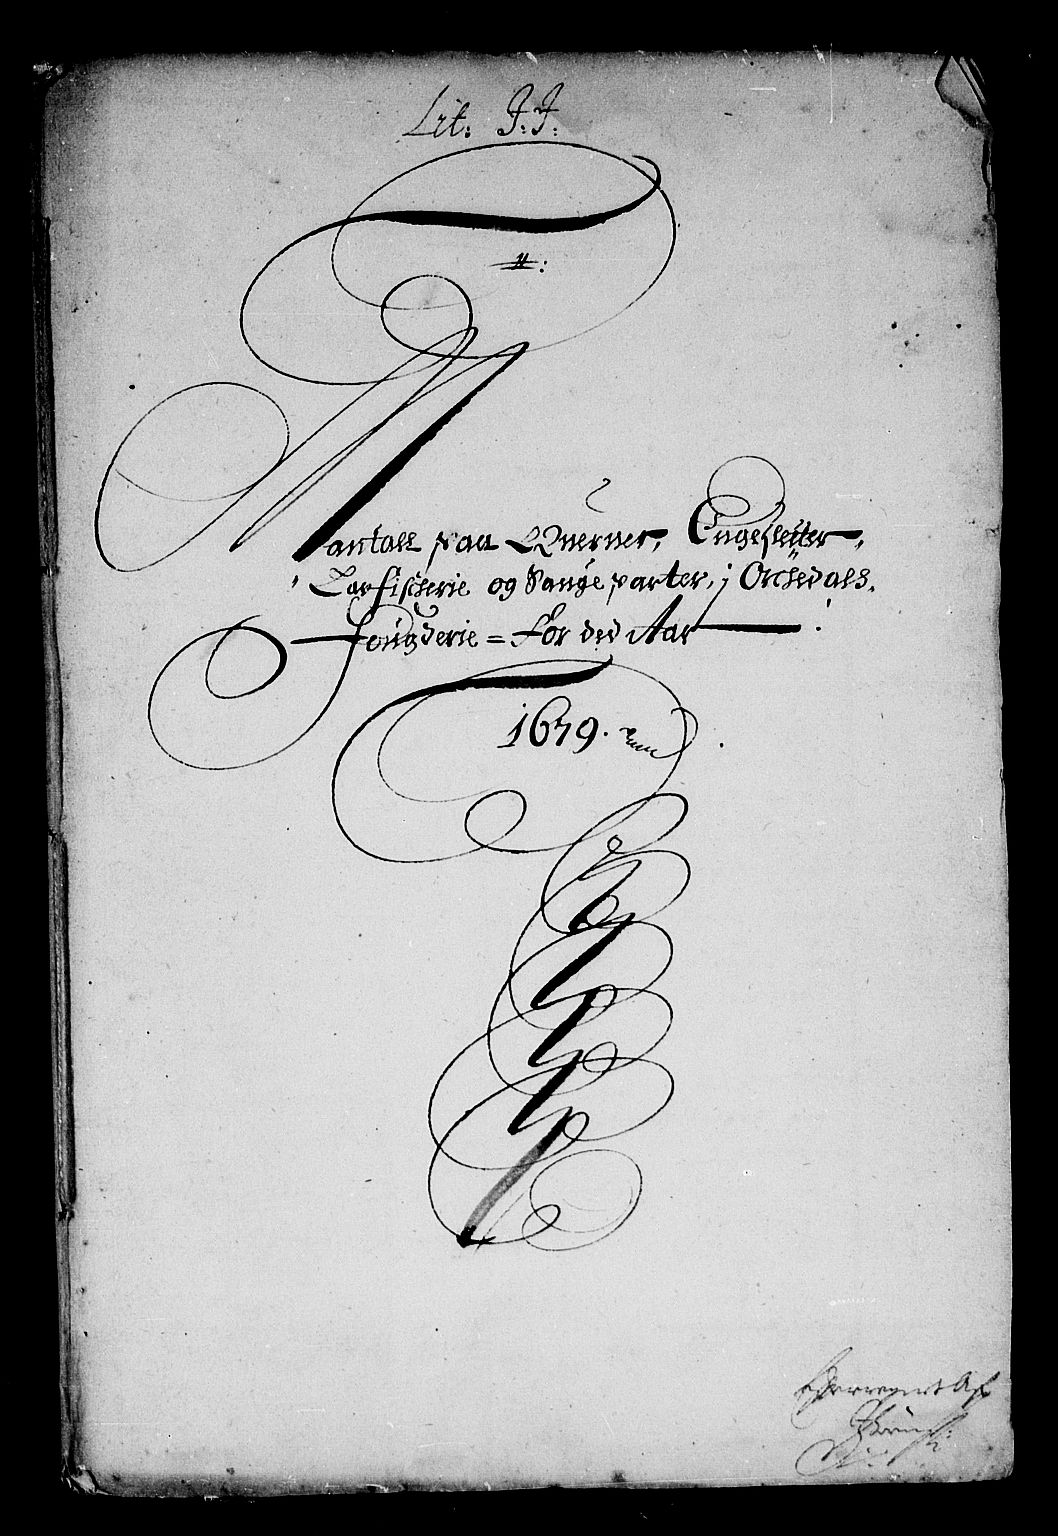 Lit: J: J:
N:
Mantall paa Querner, Engesletter,
Laxfischerie og Sauge parter, j Orchedals
Fougderie = For ded Aar
1679.